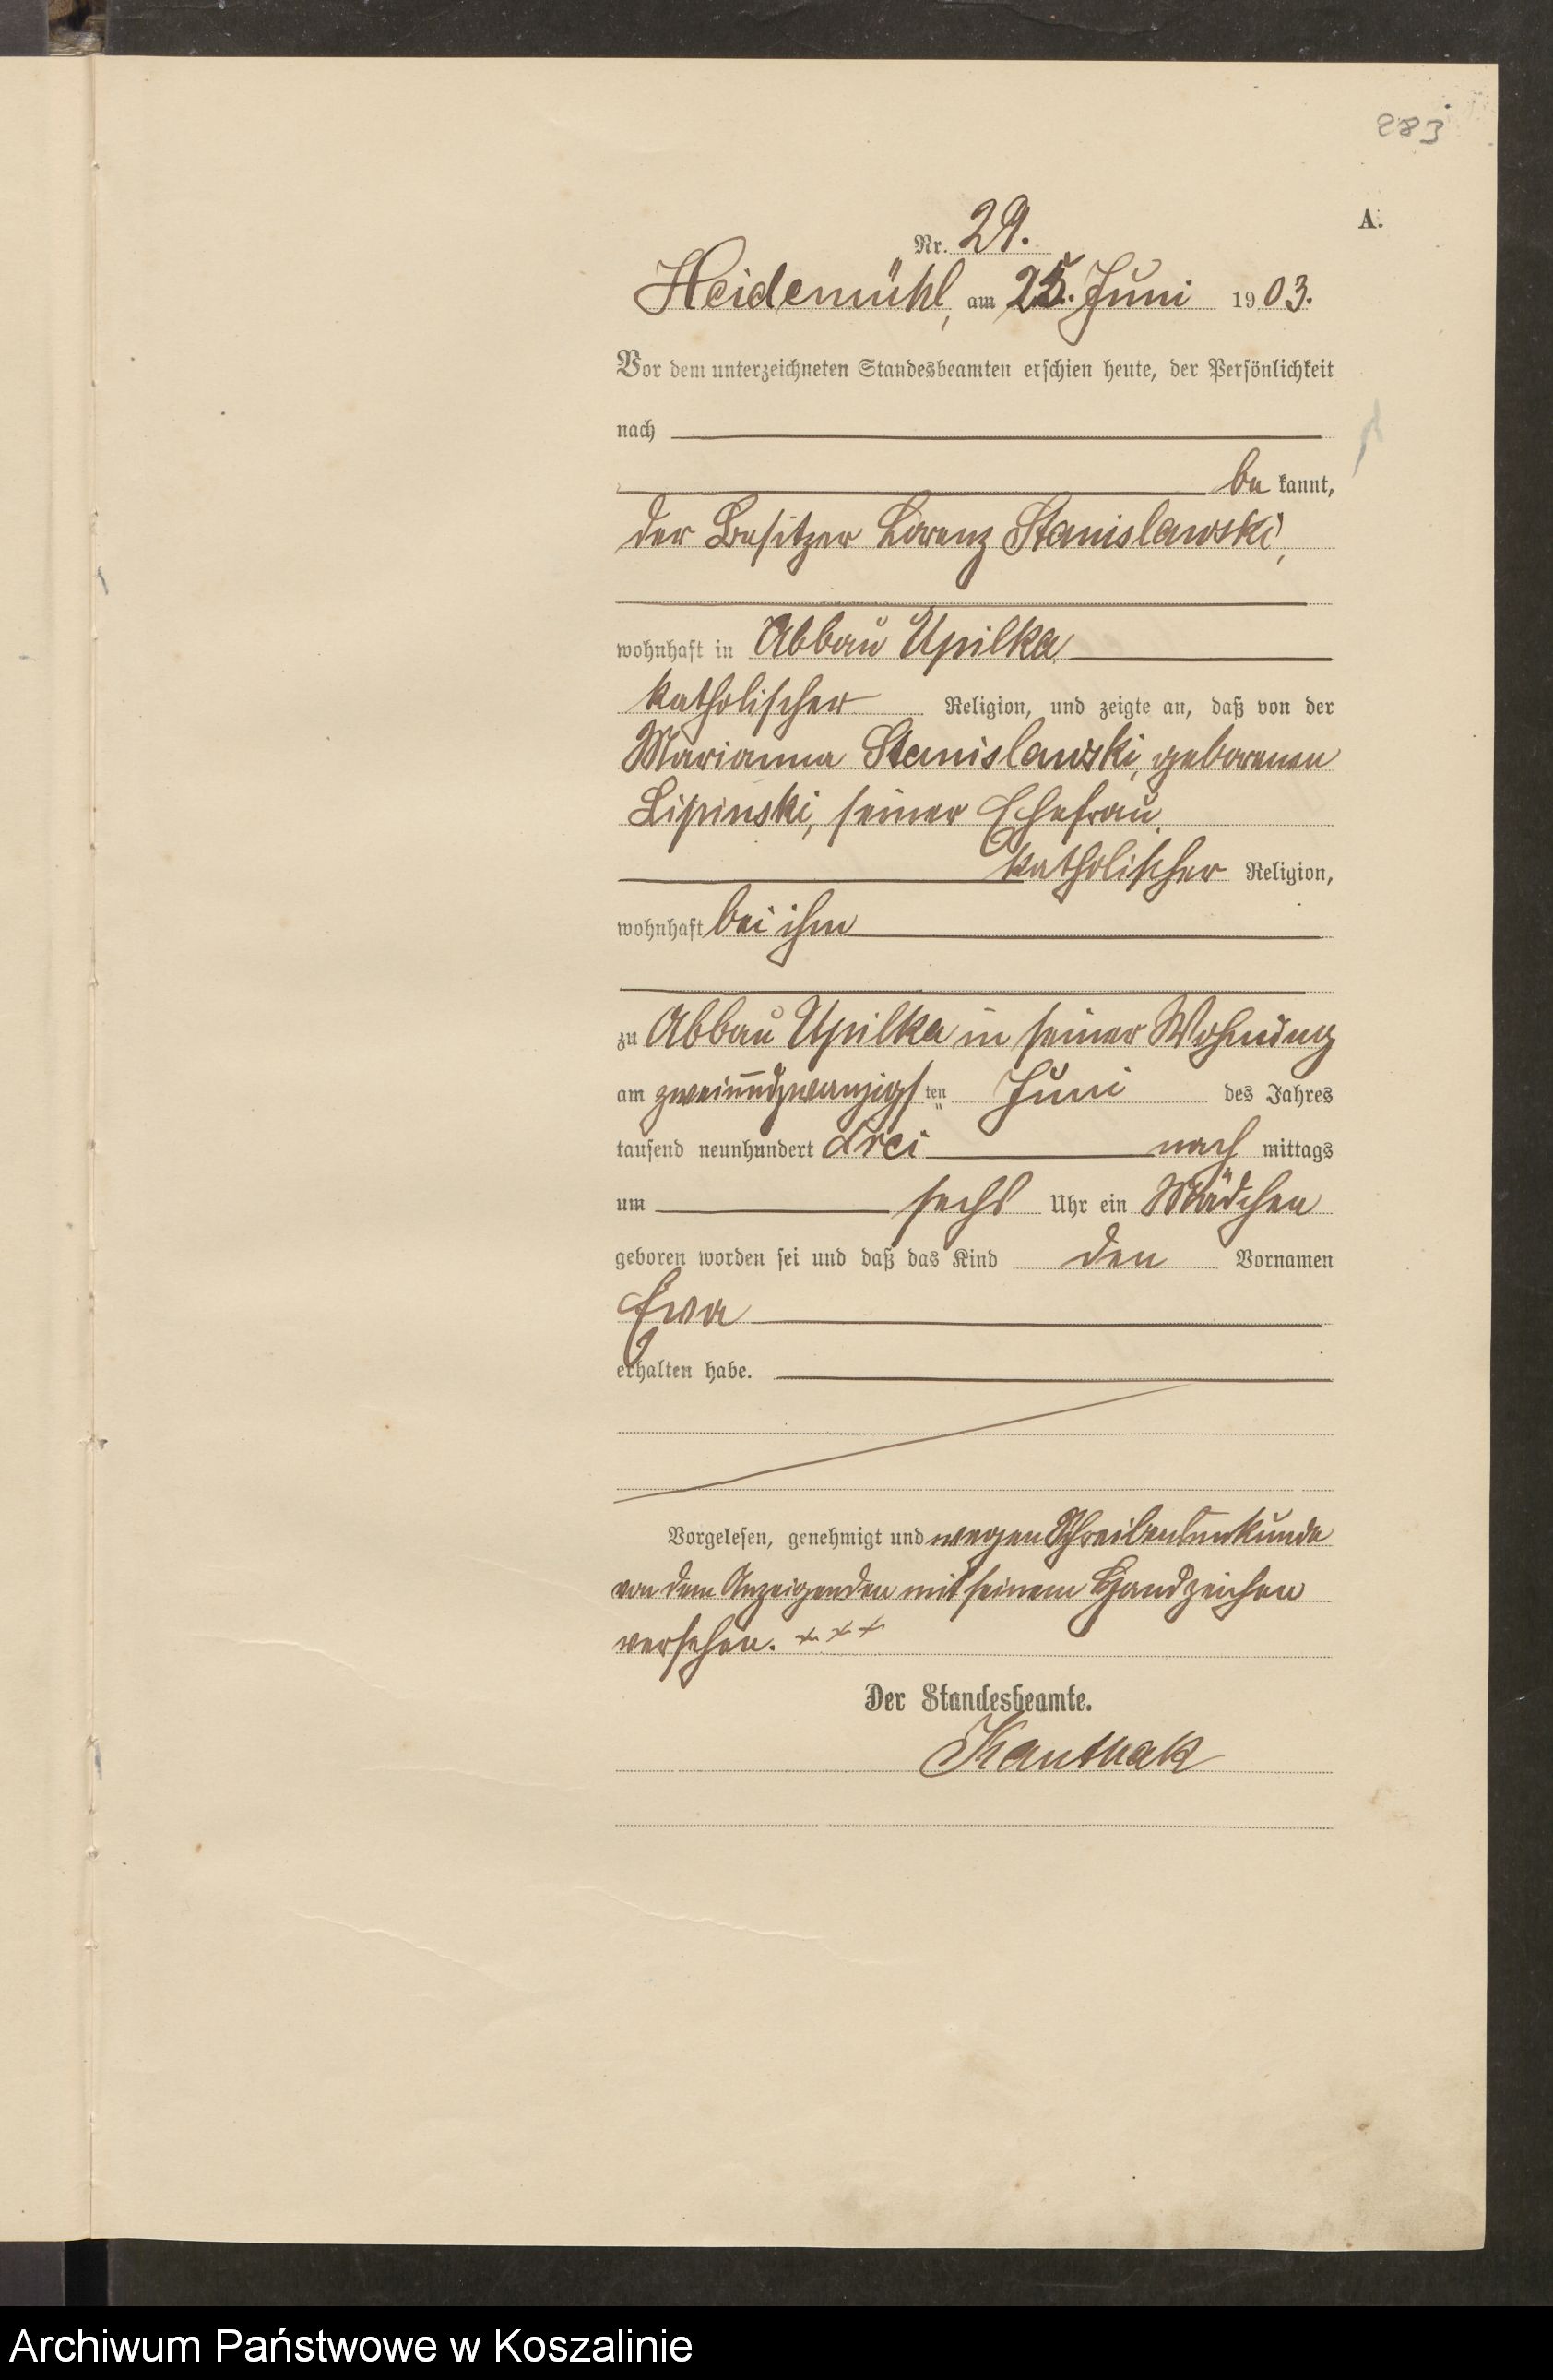 283
A.
Nr. 29.
Heidemühl, am 25. Juni 1903.
Vor dem unterzeichneten Standesbeamten erschien heute, der Persönlichkeit
nach
be kannt,
der Besitzer Lorenz Stanislawski,
wohnhaft in Abbau Upilka
katholischer Religion, und zeigte an, daß von der
Marianna Stanislawski, geborenen
Lipinski, seiner Ehefrau
katholischer Religion,
wohnhaft bei ihm
zu Abbau Upilka in seiner Wohnung
am zweiundzwanzigsten Juni des Jahres
tausend neunhundert drei nach mittags
um sechs Uhr ein Mädchen
geboren worden sei und daß das Kind den Vornamen
Ewa
erhalten habe.
Vorgelesen, genehmigt und wegen Schreibensunkunde
von dem Anzeigenden mit seinem Handzeichen
versehen. +++
Der Standesbeamte.
Kanthak
Archiwum Państwowe w Koszalinie